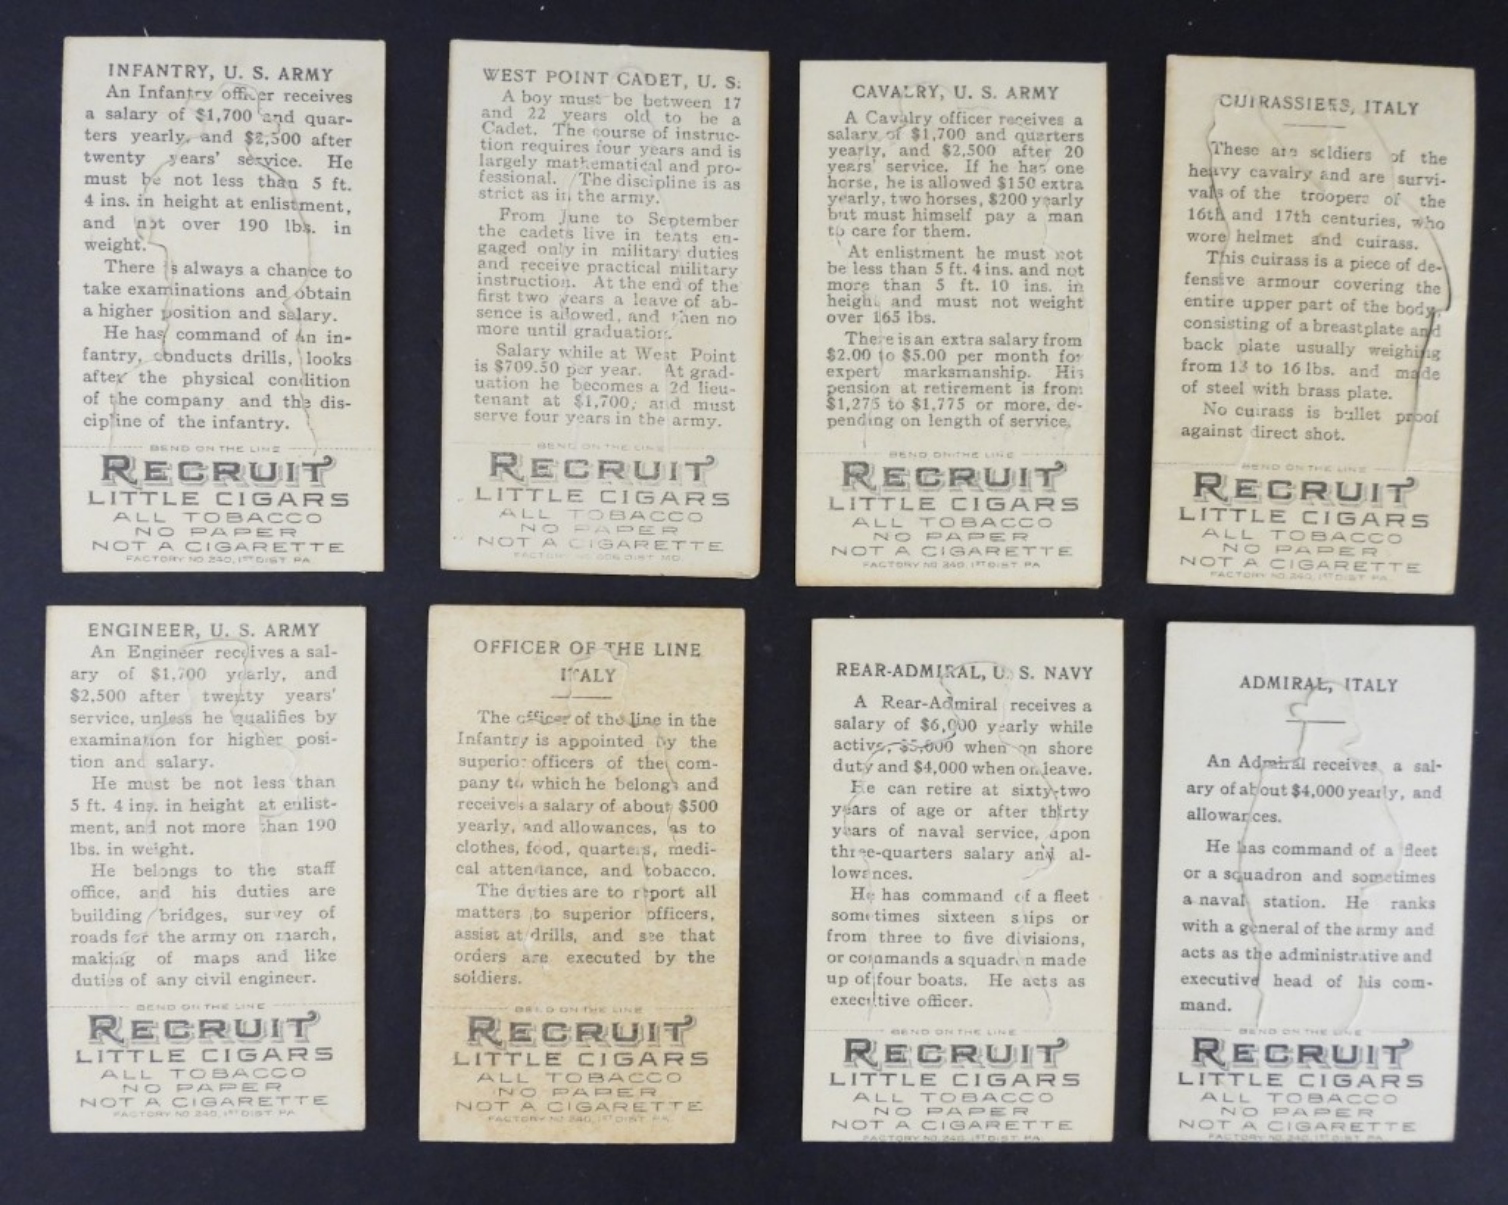 INFANTRY, U. S. ARMY
An Infantry officer receives
a salary of $1,700 and quar-
ters yearly, and $2,500 after
twenty years' service. He
must be not less than 5 ft.
4 ins. in height at enlistment,
and not over 190 lbs. in
weight.
There is always a chance to
take examinations and obtain
a higher position and salary.
He has command of an in-
fantry, conducts drills, looks
after the physical condition
of the company and the dis-
cipline of the infantry.
BEND ON THE LINE
RECRUIT
LITTLE CIGARS
ALL TOBACCO
NO PAPER
NOT A CIGARETTE
FACTORY NO 240, 1ST DIST. PA.
WEST POINT CADET, U. S.
A boy must be between 17
and 22 years old to be a
Cadet. The course of instruc-
tion requires four years and is
largely mathematical and pro-
fessional. The discipline is as
strict as in the army.
From June to September
the cadets live in tents en-
gaged only in military duties
and receive practical military
instruction. At the end of the
first two years a leave of ab-
sence is allowed, and then no
more until graduation.
Salary while at West Point
is $709.50 per year. At grad-
uation he becomes a 2d lieu-
tenant at $1,700, and must
serve four years in the army.
BEND ON THE LINE
RECRUIT
LITTLE CIGARS
ALL TOBACCO
NO PAPER
NOT A CIGARETTE
FACTORY NO DIST. MD.
CAVALRY, U. S. ARMY
A Cavalry officer receives a
salary of $1,700 and quarters
yearly, and $2,500 after 20
years' service. If he has one
horse, he is allowed $150 extra
yearly, two horses, $200 yearly
but must himself pay a man
to care for them.
At enlistment he must not
be less than 5 ft. 4 ins. and not
more than 5 ft. 10 ins. in
height and must not weight
over 165 lbs.
There is an extra salary from
$2.00 to $5.00 per month for
expert marksmanship. His
pension at retirement is from
$1,275 to $1,775 or more, de-
pending on length of service.
BEND ON THE LINE
RECRUIT
LITTLE CIGARS
ALL TOBACCO
NO PAPER
NOT A CIGARETTE
FACTORY NO 240, 1ST DIST. PA
CUIRASSIERS, ITALY
These are soldiers of the
heavy cavalry and are survi-
vals of the troopers of the
16th and 17th centuries, who
wore helmet and cuirass.
This cuirass is a piece of de-
fensive armour covering the
entire upper part of the body,
consisting of a breastplate and
back plate usually weighing
from 13 to 16 lbs. and made
of steel with brass plate.
No cuirass is bullet proof
against direct shot.
BEND ON THE LINE
RECRUIT
LITTLE CIGARS
ALL TOBACCO
NO PAPER
NOT A CIGARETTE
FACTORY NO 240, 1ST DIST. PA.
ENGINEER, U. S. ARMY
An Engineer receives a sal-
ary of $1,700 yearly, and
$2,500 after twenty years'
service, unless he qualifies by
examination for higher posi-
tion and salary.
He must be not less than
5 ft. 4 ins. in height at enlist-
ment, and not more than 190
lbs. in weight.
He belongs to the staff
office, and his duties are
building bridges, survey of
roads for the army on march,
making of maps and like
duties of any civil engineer.
BEND ON THE LINE
RECRUIT
LITTLE CIGARS
ALL TOBACCO
NO PAPER
NOT A CIGARETTE
FACTORY NO 240, 1ST DIST. PA
OFFICER OF THE LINE
ITALY
The officer of the line in the
Infantry is appointed by the
superior officers of the com-
pany to which he belongs and
receives a salary of about $500
yearly, and allowances, as to
clothes, food, quarters, medi-
cal attendance, and tobacco.
The duties are to report all
matters to superior officers,
assist at drills, and see that
orders are executed by the
soldiers.
BEND ON THE LINE
RECRUIT
LITTLE CIGARS
ALL TOBACCO
NO PAPER
NOT A CIGARETTE
FACTORY NO 240, 1ST DIST. PA.
REAR-ADMIRAL, U. S. NAVY
A Rear-Admiral receives a
salary of $6,000 yearly while
active, $5,000 when on shore
duty and $4,000 when on leave.
He can retire at sixty-two
years of age or after thirty
years of naval service, upon
three-quarters salary and al-
lowances.
He has command of a fleet
sometimes sixteen ships or
from three to five divisions,
or commands a squadron made
up of four boats. He acts as
executive officer.
BEND ON THE LINE
RECRUIT
LITTLE CIGARS
ALL TOBACCO
NO PAPER
NOT A CIGARETTE
FACTORY NO. 240, 1ST DIST. PA.
ADMIRAL, ITALY
An Admiral receives a sal-
ary of about $4,000 yearly, and
allowances.
He has command of a fleet
or a squadron and sometimes
a naval station. He ranks
with a general of the army and
acts as the administrative and
executive head of his com-
mand.
BEND ON THE LINE
RECRUIT
LITTLE CIGARS
ALL TOBACCO
NO PAPER
NOT A CIGARETTE
FACTORY NO. 240, 1ST DIST. PA.